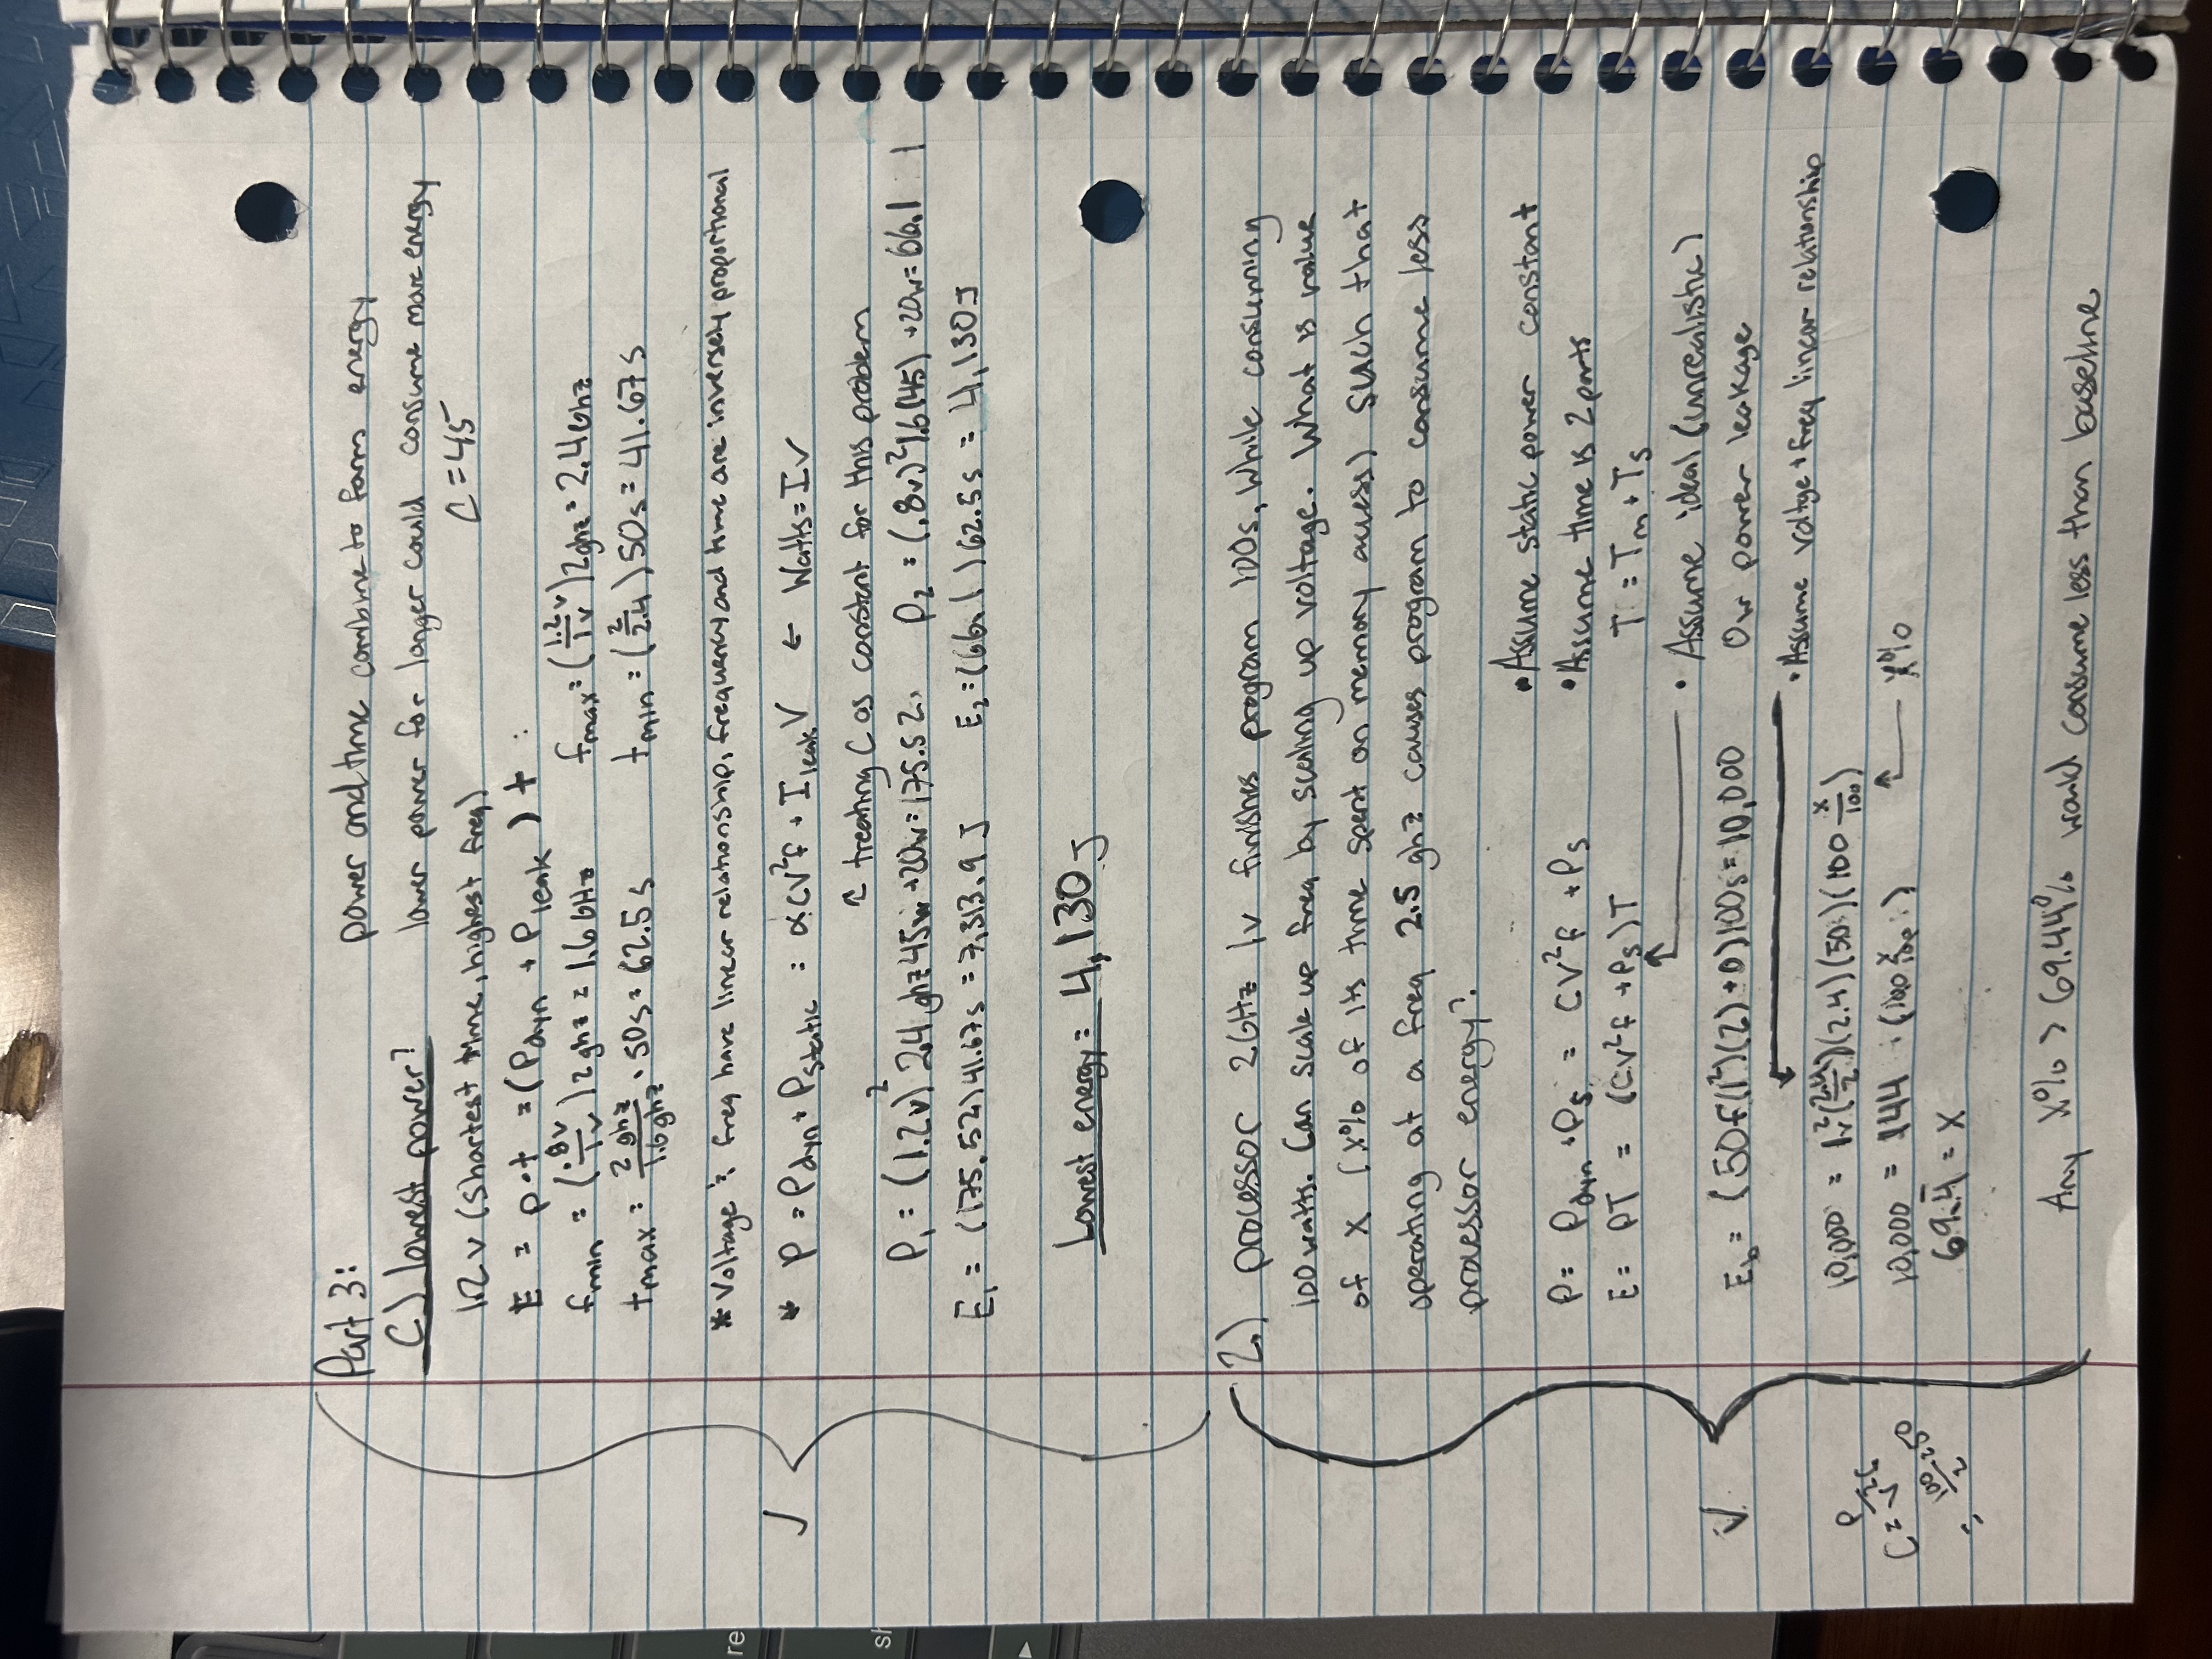 Part 3: power and time combine to form energy
C) lowest power? lower power for longer could consume more energy
1.2 v (shortest time, highest freq) C = 45
E = p·t = (Pdyn + Pleak) t :
fmin = (.8v/1v) 2 ghz = 1.6 GHz fmax = (1.2v/1v) 2ghz = 2.4 Ghz
tmax = 2 ghz/1.6 ghz · 50s = 62.5 s tmin = (2/2.4) 50s = 41.67 s
* Voltage & freq have linear relationship, frequency and time are inversely proportional
* P = Pdyn + Pstatic = αCV²f + Ileak V ← Watts = IV
↑ treating C as constant for this problem
P₁ = (1.2v)² 2.4 ghz 45w + 20w = 175.52, P₂ = (.8v)² 1.6(45) + 20w = 66.1
E₁ = (175.52) 41.67s = 7,313.9 J E₂ = (66.1) 62.5s = 4,130 J
Lowest energy = 4,130 J
J
2.) processor 2GHz 1v finishes program 100s, while consuming
100 watts. Can scale up freq by scaling up voltage. What is value
of X (X% of its time spent on memory access) such that
operating at a freq 2.5 ghz causes program to consume less
processor energy?
• Assume static power constant
P = Pdyn + Ps = CV²f + Ps • Assume time is 2 parts
E = PT = (CV²f + Ps)T T = Tm + Ts
• Assume ideal (unrealistic)
Eb = (50f(1²)(2) + 0)100s = 10,000 0w power leakage
• Assume voltge + freq linear relationship
10,000 = 1v²(2.4/2)(2.4)(50)(100 x/100)
10,000 = 144 (100 x/100) ← X%
69.4̄ = X
C = P/V²f
= 100/2 = 50
Any X% > 69.44% would consume less than baseline